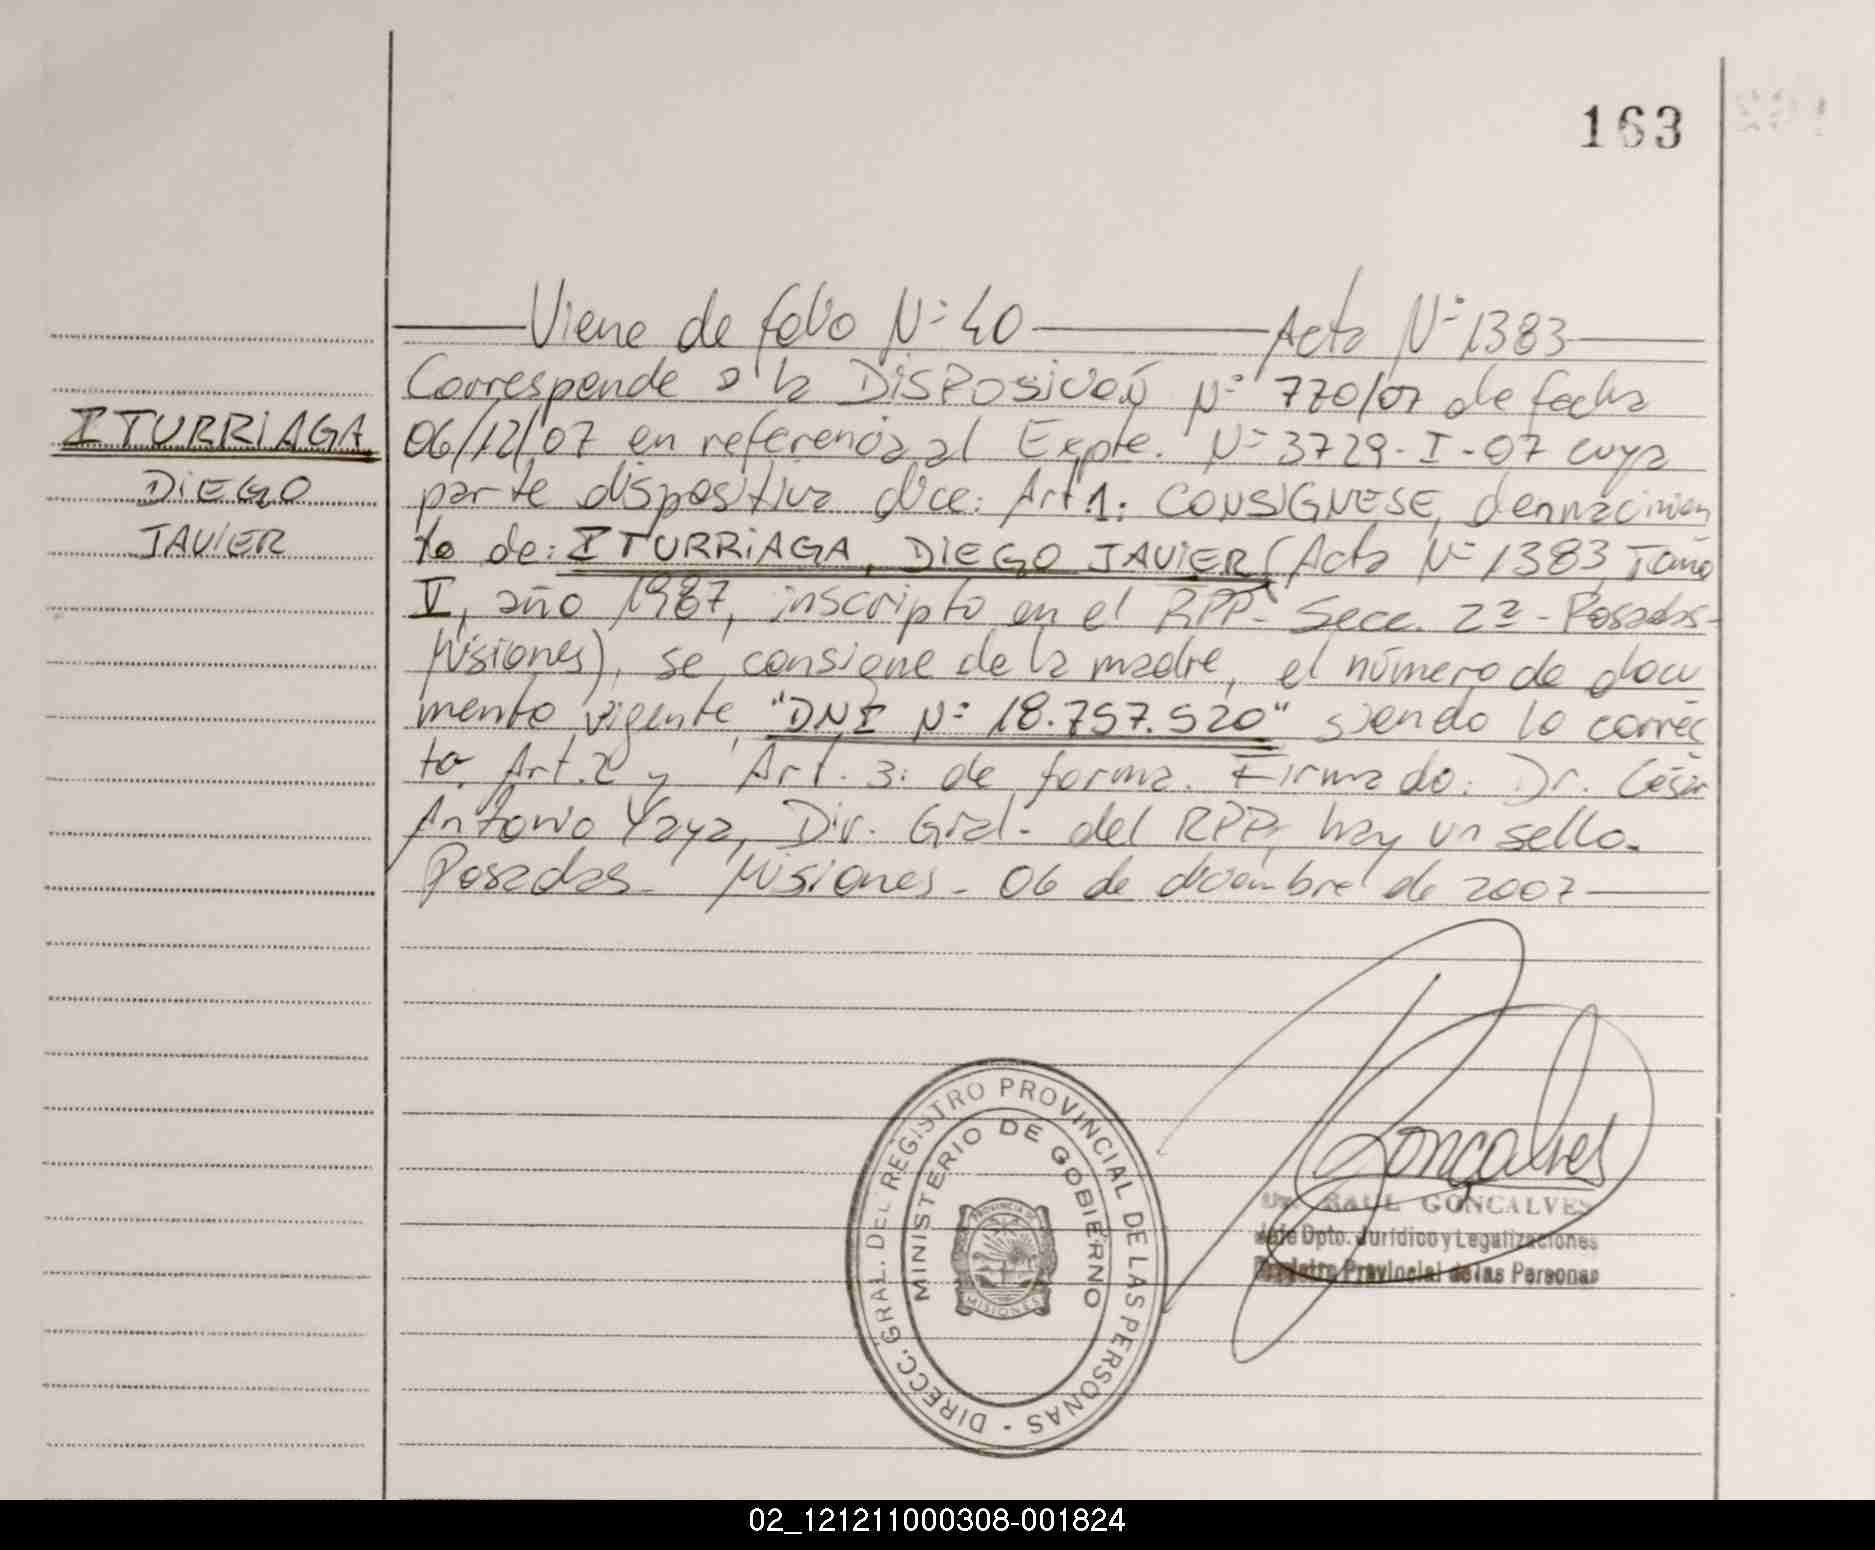 163
Viene de folio Nº 40 Acta Nº 1383
Corresponde a la DISPOSICIÓN Nº 770/07 de fecha
ITURRIAGA 06/12/07 en referencia al Expte. Nº 3729-I-07 cuya
DIEGO parte dispositiva dice: Art 1: CONSIGNESE, en nacimien
JAVIER to de: ITURRIAGA, DIEGO JAVIER (Acta Nº 1383, Tomo
V, año 1987, inscripto en el RPP- Secc. 2ª - Posadas-
Misiones), se consigne de la madre, el número de docu
mento vigente, "DNI Nº 18.757.520" siendo lo correc
to. Art. 2 y Art. 3: de forma. Firmado: Dr. César
Antonio Yaya, Dir. Gral. del RPP, hay un sello.
Posadas - Misiones - 06 de diciembre de 2007
DIRECC. GRAL. DEL REGISTRO PROVINCIAL DE LAS PERSONAS -
MINISTERIO DE GOBIERNO
PROVINCIA DE
MISIONES
Goncalves
Dr. RAUL GONCALVES
Jefe Dpto. Jurídico y Legalizaciones
Registro Provincial de las Personas
02_121211000308-001824